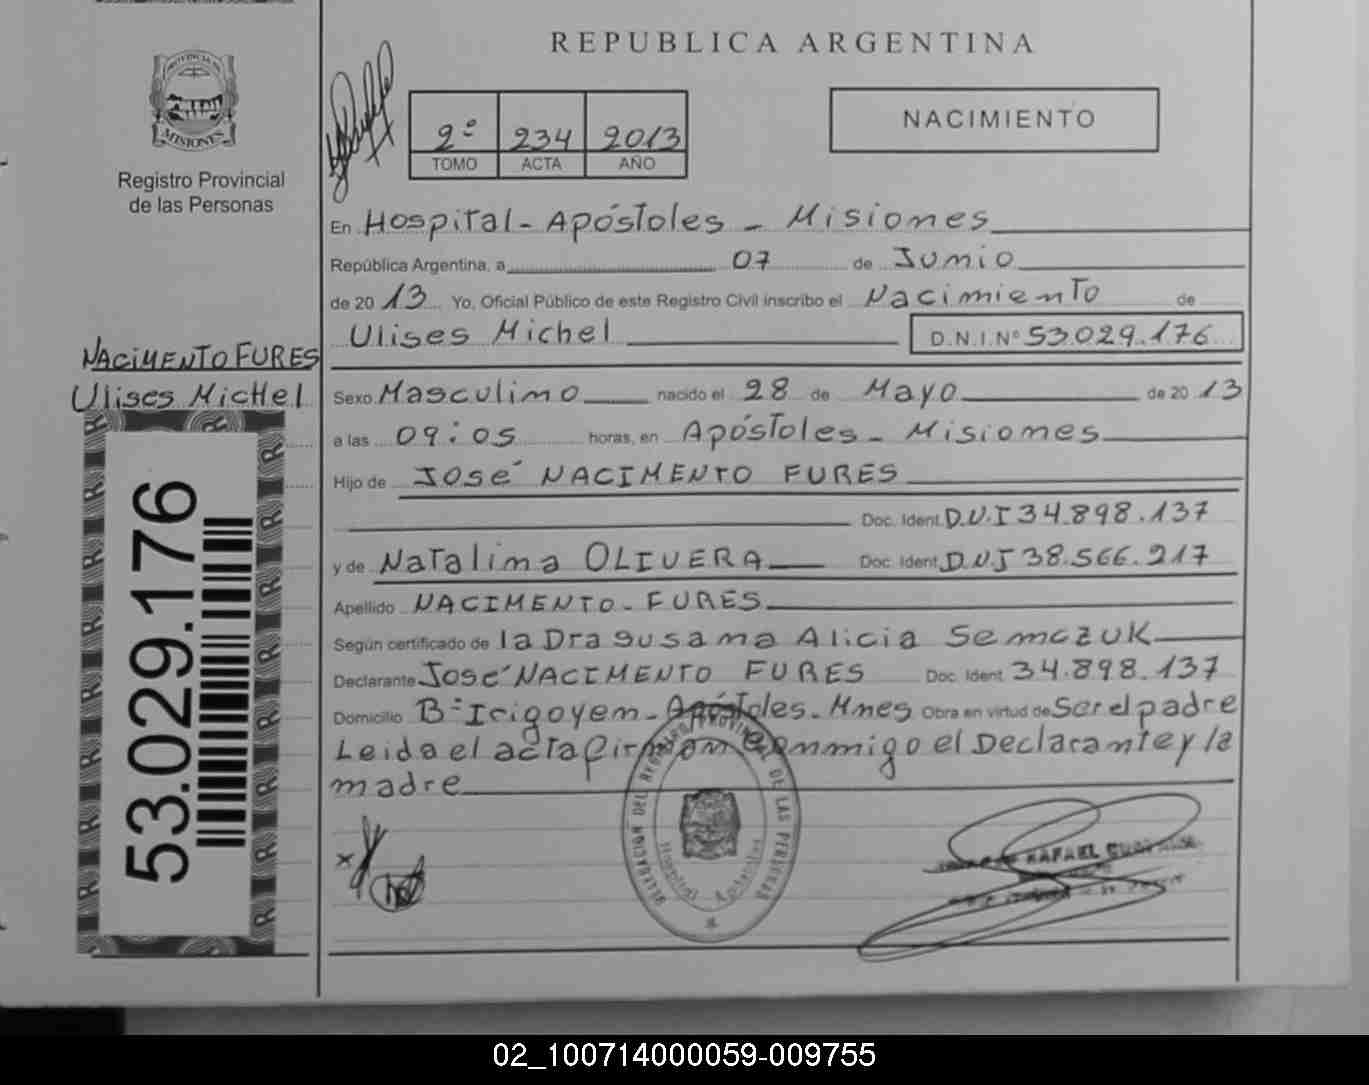 REPUBLICA ARGENTINA
PROVINCIA DE
MISIONES
Registro Provincial
de las Personas
2º 234 2013
TOMO ACTA AÑO
NACIMIENTO
En Hospital - Apóstoles - Misiones
República Argentina, a 07 de Junio
de 2013 Yo, Oficial Público de este Registro Civil inscribo el Nacimiento de
Ulises Michel D.N.I.Nº 53.029.176
NACIMENTO FURES
Ulises Michel
Sexo Masculino nacido el 28 de Mayo de 2013
a las 09:05 horas, en Apóstoles - Misiones
Hijo de José NACIMENTO FURES
Doc. Ident. D.N.I 34.898.137
y de Natalina OLIVERA Doc. Ident. D.N.I 38.566.217
Apellido NACIMENTO - FURES
Según certificado de la Dra Susana Alicia Semczuk
Declarante José NACIMENTO FURES Doc. Ident 34.898.137
Domicilio Bº Irigoyen - Apóstoles - Mnes Obra en virtud de Ser el padre
Leida el acta firman conmigo el Declarante y la
madre
53.029.176
DELEGACION DEL REGISTRO PROVINCIAL DE LAS PERSONAS
Hospital Apóstoles
RAFAEL
02_100714000059-009755